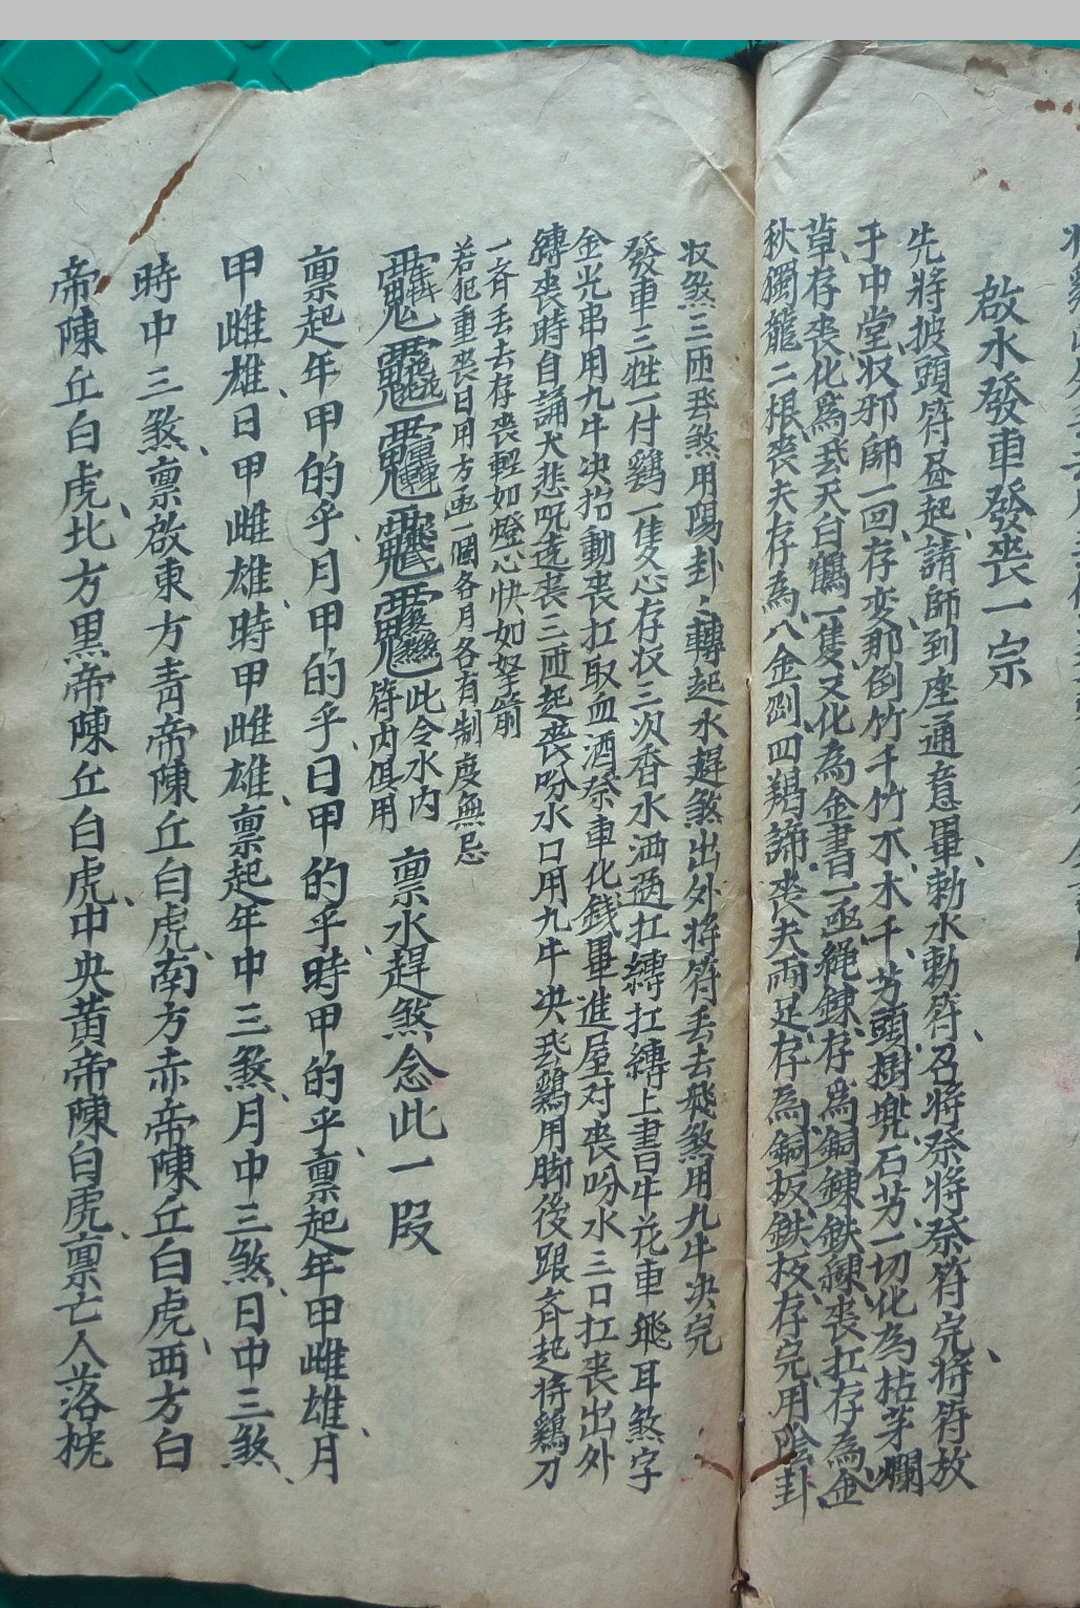 啟水發車發喪一宗
先將披頭符登起、請師到座通意畢、勅水勅符、召將祭將祭符完、將符放
于中堂収邪師一回、存变那倒竹千竹不、木千、芳頭樹兠石芳、一切化為枯茅爛
草、存喪化爲丟天白鶴一隻、又化為金書一函、繩鍊、存爲銅鍊鉄練、喪扛存為金
秋獨龍二根、喪夫存為八金剛四羯諦、喪夫兩足、存為銅板鉄板、存完、用陰卦
収煞三匝丟煞用陽卦、轉起水趕煞出外將符丟去飛煞用九牛决完
發車三牲一付鷄一隻心存収三次香水洒過扛縛扛縛上書日牛花車飛耳煞字
金光串用九牛决抬動喪扛取血酒祭車化錢畢進屋对喪吩水三口扛喪出外
縛喪時自誦大悲呪遶喪三匝起喪吩水口用九牛决丟鷄用脚後跟齐起將鷄刀
一齐丟去存喪輕如燈心快如弩箭
若犯重喪日用方函一個各月各有制度無忌
此令水内
符内俱用
禀水趕煞念此一段
禀起年甲的乎、月甲的乎、日甲的乎、時甲的乎、禀起年甲雌雄、月
甲雌雄、日甲雌雄、時甲雌雄、禀起年中三煞、月中三煞、日中三煞、
時中三煞、禀啟東方青帝陳丘白虎、南方赤帝陳丘白虎、西方白
帝陳丘白虎、北方黑帝陳丘白虎、中央黃帝陳白虎、禀亡人落枕